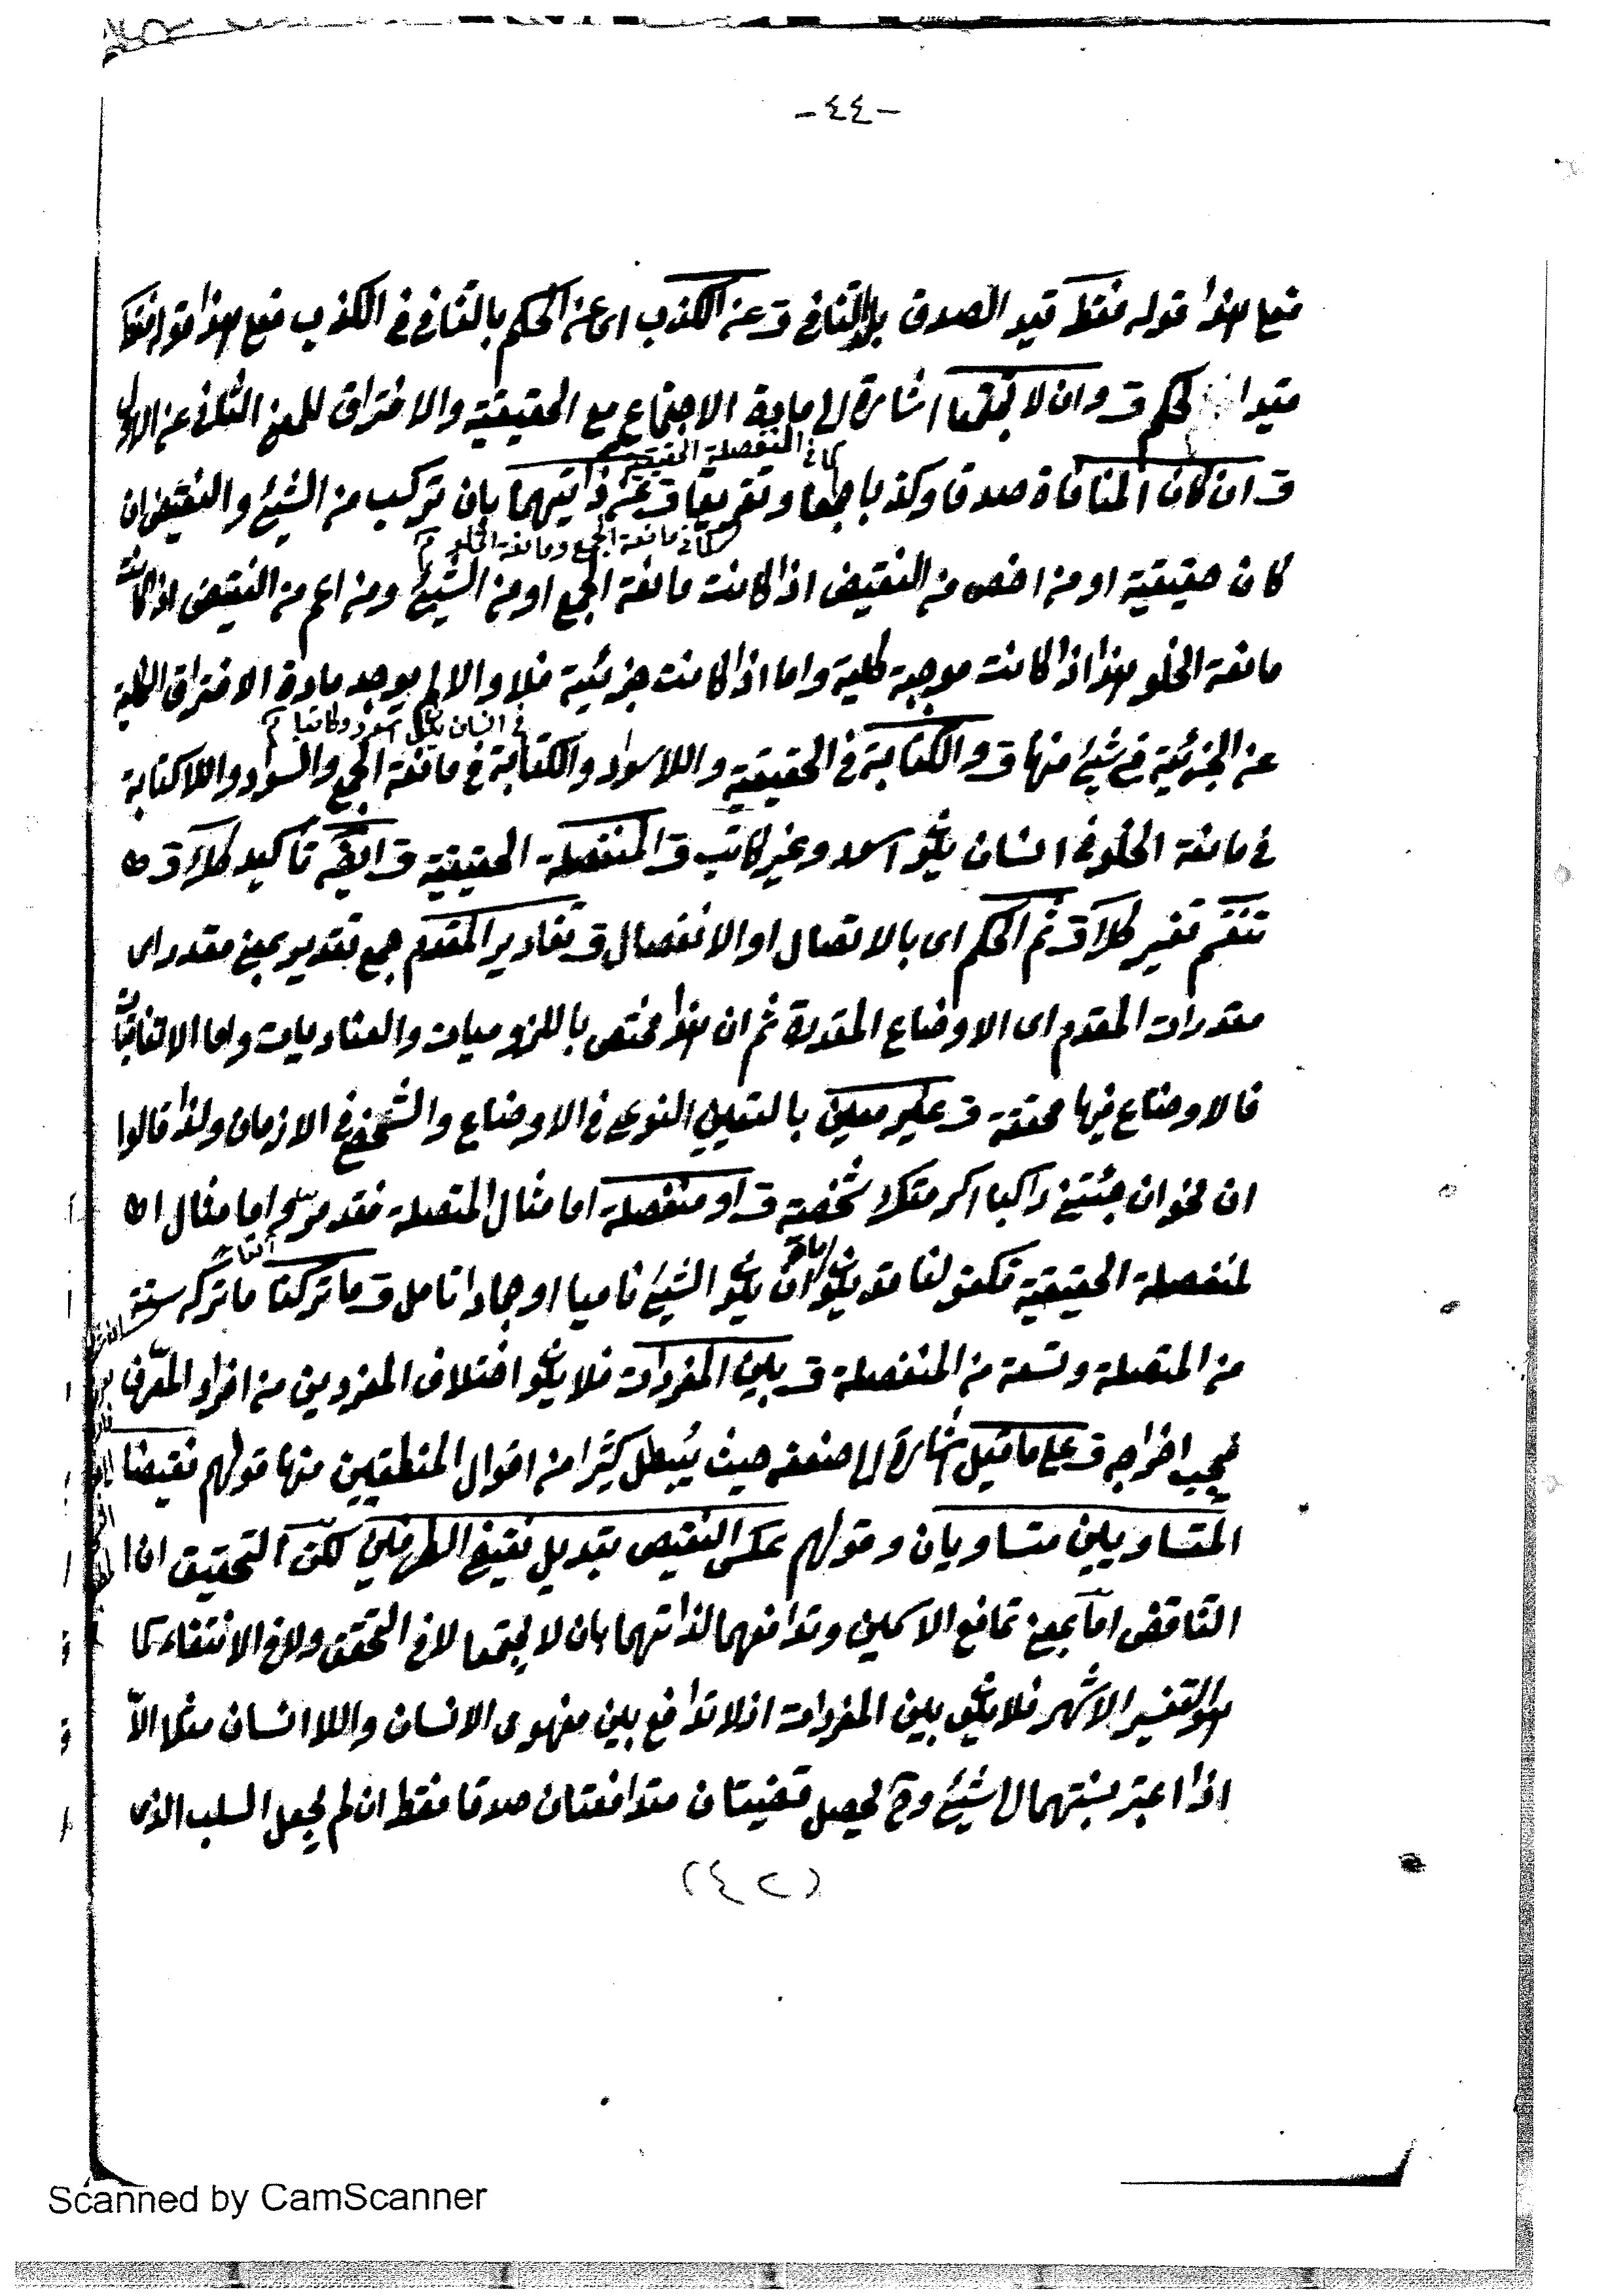 -٤٤-
فعلى هذا قوله فقط قيد الصدق بل التنافى ق عن الكذب اى عن الحكم بالتنافى فى الكذب فعلى هذا قوله فقط
قيدا الحكم ق وان لا يجتمعا اشارة الى مادة الاجتماع مع الحقيقية والافتراق للمعنى الثانى عن الاول
كما فى المنفصلة الحقيقية
ق ان كان المنافاة صدقا وكذبا جمعا وتفريقا ق عن ذاتيهما بان تركيب من الشيئ والنقيض ان
كما فى مانعة الجمع ومانعة الخلو م
كان حقيقية او من اخص من النقيض اذا كانت مانعة الجمع او من الشيئ ومن اعم من النقيض اذا كانت
مانعة الخلو هذا اذا كانت موجبة كلية واما اذا كانت جزئية فلا والا لم يوجد مادة الافتراق الكلية
فى انسان يكون اسود وكاتبا م
عن الجزئية فى شيئ منها ق والكتابة فى الحقيقية واللاسواد والكتابة فى مانعة الجمع والسواد واللاكتابة
فى مانعة الخلو فى انسان يكون اسود وغير كاتب ق المنفصلة الحقيقية ق ايضا تأكيد كلا ق
تنقسم تفسير كلا ق ثم الحكم اى بالاتصال او الانفصال ق تقادير المقدم جمع تقدير بمعنى مقدر اى
مقدرات المقدم اى الاوضاع المقدرة ثم ان هذا مختص باللزوميات والعناديات واما الاتفاقيات
فالاوضاع فيها محققة ق غير معين بالتعين النوعى فى الاوضاع والشخصى فى الازمان ولذا قالوا
ان نحو ان جئتنى راكبا اكرمتك لا شخصية ق او منفصلة اما مثال المتصلة فقد مر واما مثال ال
لمنفصلة الحقيقية فكقولنا قد يكون اما ان يكون الشيئ ناميا او جمادا تامل ق ما تركنا ما تركه ستة
من المتصلة وتسعة من المنفصلة ق بين المفردات فلا يكون اختلاف المفردين من افراد المعرف
فيجب اخراجه ق على ما قيل اشارة الى ضعفه حيث يبطل كثيرا من اقوال المنطقيين منها قولهم نقيضا
المتساويين متساويان وقولهم عكس النقيض تبديل نقيضى الطرفين لكن التحقيق ان
التناقض اما بمعنى تمانع الامرين وتدافعهما لذاتهما بان لا يجتمعا لا فى التحقق ولا فى الانتفاء كما
هو التفسير الاشهر فلا يكون بين المفردات اذ لا تدافع بين مفهومى الانسان واللا انسان مثلا الا
اذا اعتبر نسبتهما الى شيئ وح يحصل قضيتان متدافعتان صدقا فقط ان لم يجعل السلب الذى
(٤٢)
Scanned by CamScanner